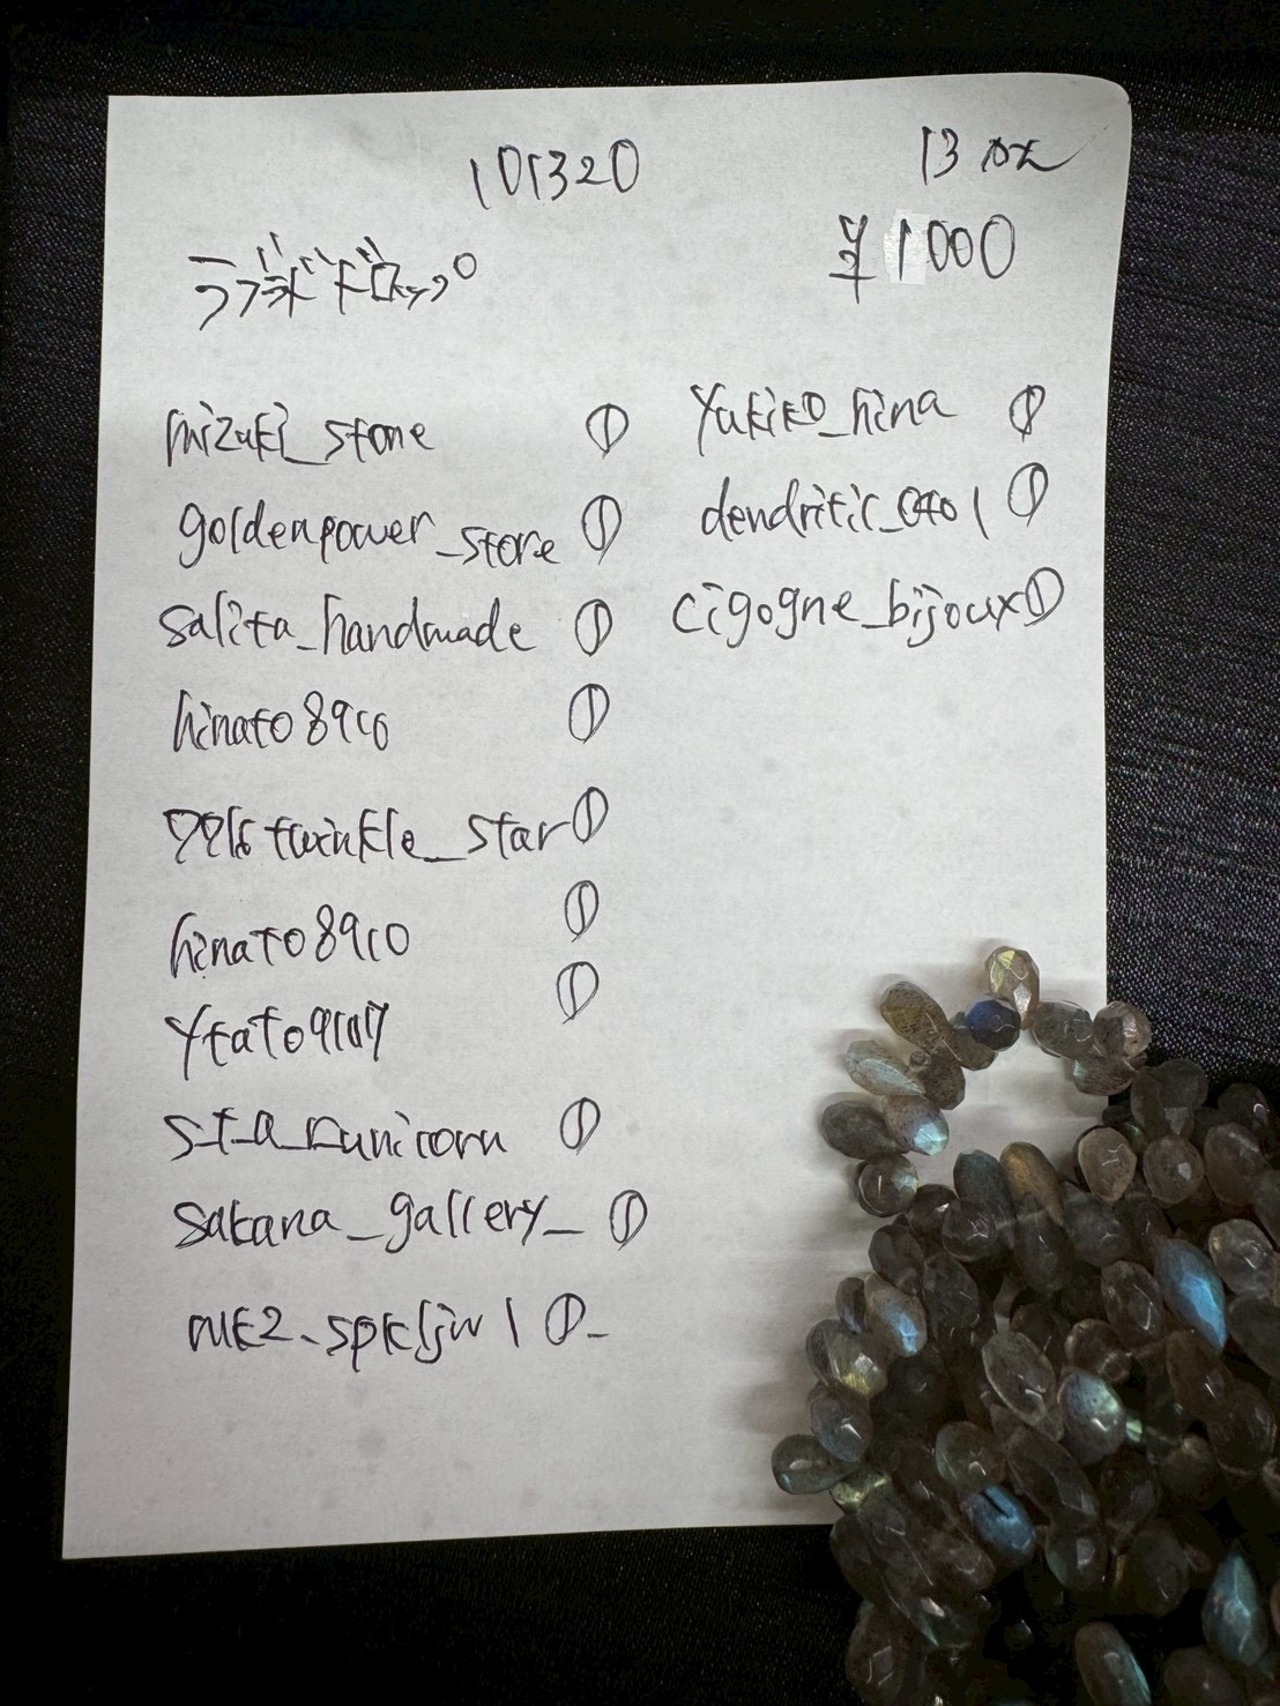 101320
13 pcs
¥1000
ラブラドロップ
mizuki_stone ①
goldenpower_store ①
salita_handmade ①
hinato8910 ①
twinkle_star ①
hinato8910 ①
①
sta_runicorn ①
sakana_gallery_ ①
①
yukiko_hina ①
dendritic_0401 ①
cigogne_bijoux ①